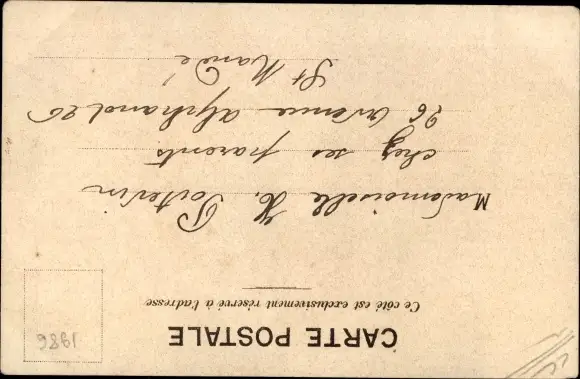 CARTE POSTALE
Ce côté est exclusivement réservé à l'adresse
1986
Mademoiselle H. Poitevin
chez ses parents
26 avenue Alphand 26
St Mandé